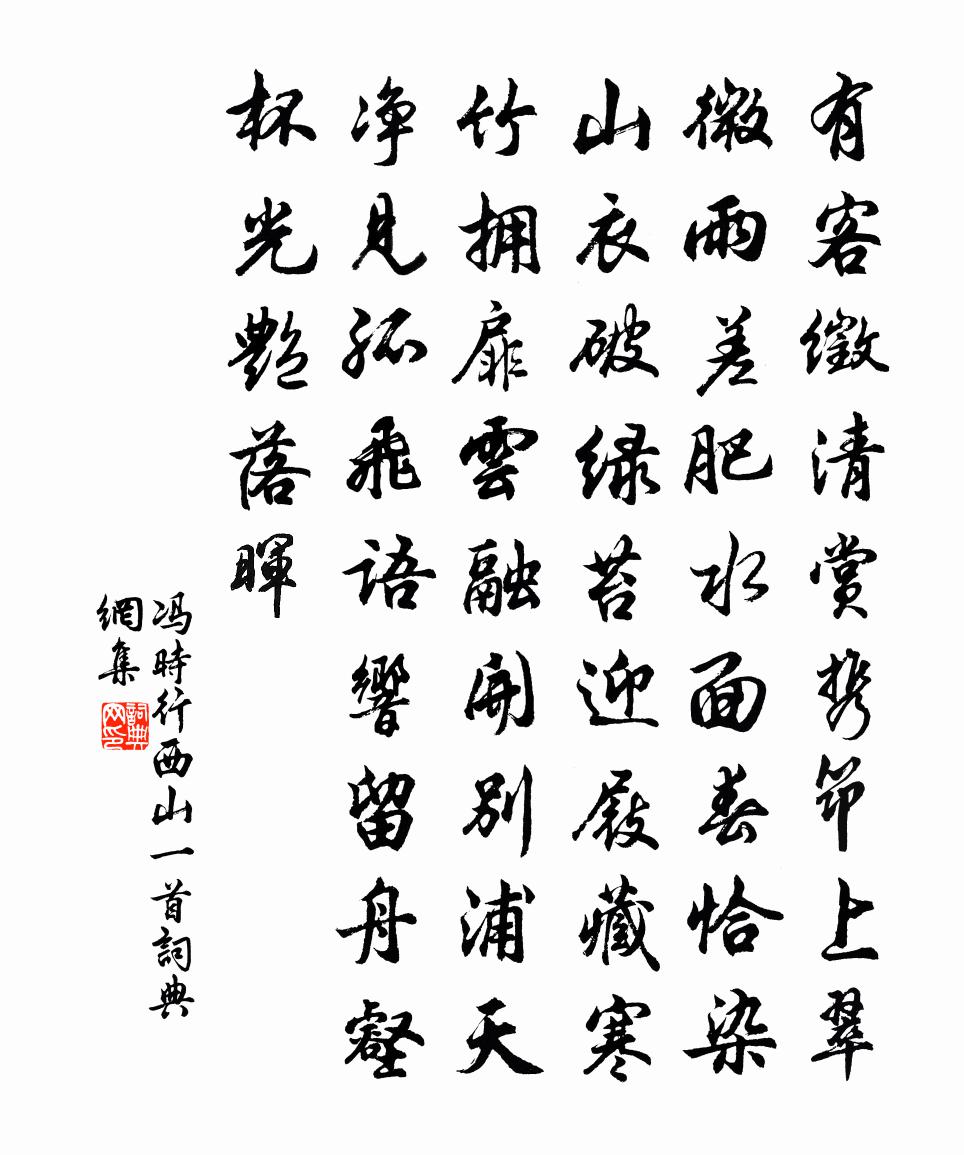 有客徵清賞携筇上翠
微雨差肥水面春恰染
山衣破緑苔迎屐藏寒
竹拥扉雲融開别浦天
净見孤飛語響留舟壑
杯光艷落暉
冯時行西山一首詞典
網集
詞典网印